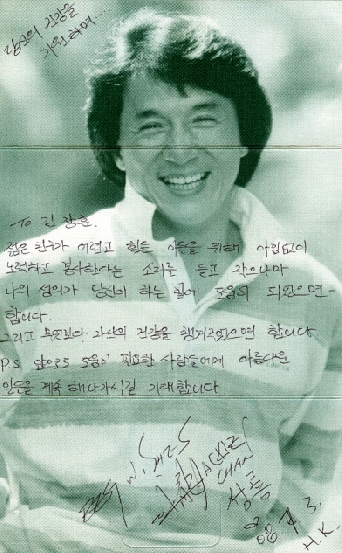 당신의 건강을
기원하며...
-To 김 장훈.
젊은 친구가 어렵고 힘든 이웃을 위해 아낌없이
노력하고 봉사한다는 소리를 듣고 작으나마
나의 성의가 당신이 하는 일에 도움이 되었으면-
합니다.
그리고 무엇보다 자신의 건강을 챙기셨으면 합니다.
P.S 앞으로도 도움이 필요한 사람들에게 아름다운
일들을 계속 해나가시길 기대합니다
Best Wishes
CHAN
성룡
08 3.
H.K.